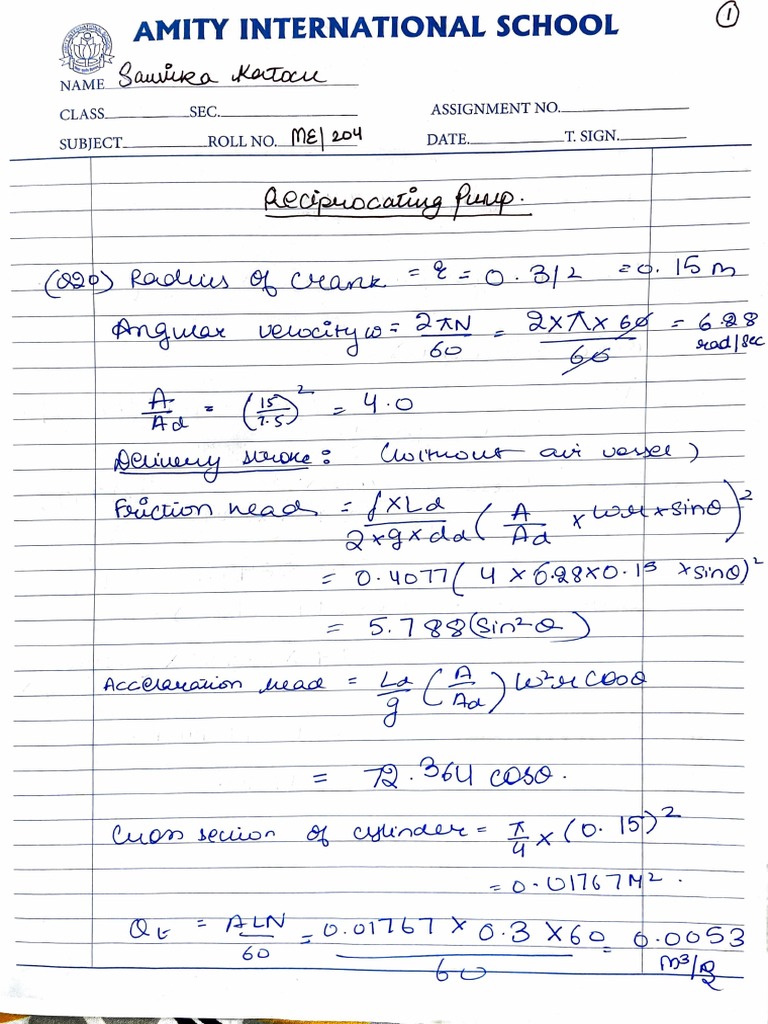 ①
AMITY INTERNATIONAL SCHOOL
NAME Sawika Kataru
CLASS SEC. ASSIGNMENT NO.
SUBJECT ROLL NO. ME/204 DATE. T. SIGN.
Reciprocating Pump.
(Q20) Radius of crank = r = 0.3/2 = 0.15 m
Angular velocity ω = 2πN/60 = 2×π×60/60 = 6.28 rad/sec
A/Ad = (15/7.5)² = 4.0
Delivery stroke: (without air vessel)
Friction head = f×Ld/2×g×dd (A/Ad × ωr × sinθ)²
= 0.4077 (4 × 6.28×0.15 × sinθ)²
= 5.788 (sin²θ)
Acceleration head = Ld/g (A/Ad) ω²r cosθ
= 72.364 cosθ.
Cross section of cylinder = π/4 × (0.15)²
= 0.01767 M².
Qt = ALN/60 = 0.01767 × 0.3 × 60/60 = 0.0053 m³/s